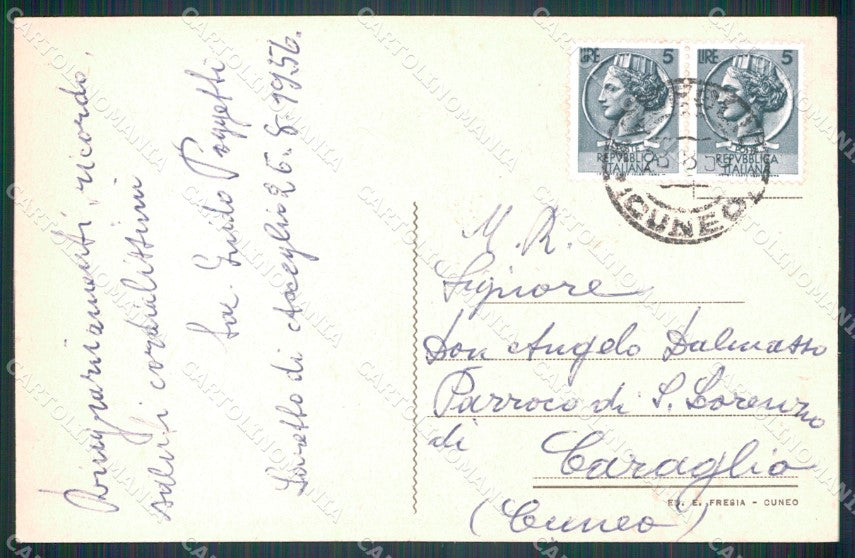 Ringraziamenti, ricordo,
saluti cordialissimi
Sac. Guido Poggetti
di Acceglio 26.8.1956.
LIRE 5
REPVBBLICA
ITALIANA
LIRE 5
REPVBBLICA
ITALIANA
(CUNEO)
M. R.
Signore
Don Angelo Dalmasso
Parroco di S. Lorenzo
di
Caraglio
(Cuneo)
ED. E. FRESIA - CUNEO
CARTOLINOMANIA